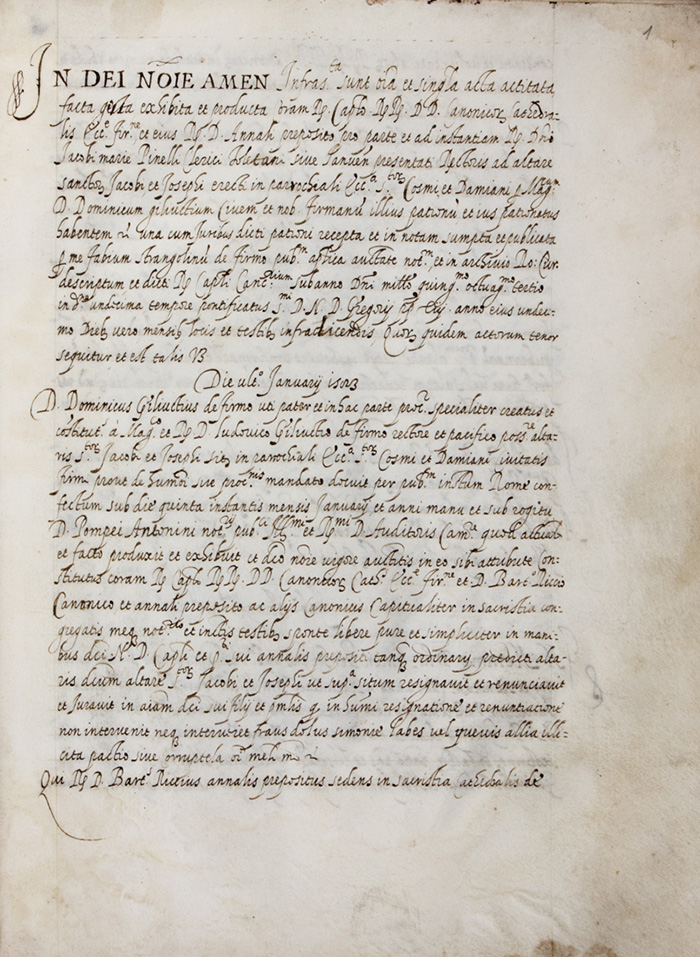 1
IN DEI NOIE AMEN Infras.ta sunt oia et singla acta actitata
facta gesta exhibita et producta coram R. Caplo RR. DD. Canonicor. Cathedra-
lis Ecc.e Fir.ne et eius R. D. Annali preposito pro parte et ad instantiam R. Dni
Jacobi marie Pinelli Clerici sive Januen presentati Rectoris ad altare
sanctor. Jacobi et Josephi erecti in parrochiali Ecc.a S.tor. Cosmi et Damiani p Mag.um
D. Dominicum giliuctium Civem et nob. firmanū illius patronū et ius patronatus
habentem una cum Juribus dicti patroni recepta et in notam sumpta et publicata
p me fabium strangolinū de firmo pub.m aplica auctate not.m, et in archivio Ro: Cur.
descriptum et dicti R. Capli Canc.rium sub anno Dni mill.o quing.mo octuag.mo tertio
ind.ne undecima tempore pontificatus S.mi D. N. D. Gregorij pp. xiij. anno eius undec-
mo Dieb. vero mensib. locis et testib. infradicendis Quor. quidem actorum tenor
sequitur et est talis V3
Die ult.o January 1583
D. Dominicus Giliuctius de firmo uti pater et in hac parte pro.r specialiter creatus et
cōstitut. à Mag.co et R. D. Ludovico Giliuctio de firmo rectore et pacifico poss.re alta-
ris S.tor. Jacobi et Josephi sit. in parochiali Ecc.a S.tor. Cosmi et Damiani civitatis
firmi prout de humōi sive proc.nis mandato docuit per pub.m instum Rome con-
fectum sub die quinta instantis mensis January et anni manu et sub rogitu
D. Pompei Antonini not.rij pub.ci Ill.mi et R.mi D. Auditoris Cam.e quod actualr
et facto produxit et exhibuit et dico nore vigore auctatis in eo sibi attribute Con-
stitutus coram R. Caplo RR. DD. Canonicor. Cath.s Ecc.e Fir.ne et D. Bart.o Riccio
Canonico et annali preposito ac alijs Canonicis Capitualiter in sacristia con-
gregatis meq. not.rio et infris testib. sponte libere pure et simpliciter in mani-
bus dci R. D. Capli et p.ti sui annalis prepositi tanq. ordinarij predicti alta-
ris dictum altare S.tor. Jacobi et Josephi ut sup.a situm resignavit et renunciavit
et Juravit in aiam dci sui filij et pntis q. in humoi resignatione et renuntiatione
non intervenit neq. interveniet fraus dolus simonie labes vel quevis allia illi-
cita pactio sive corruptela oi mel. m.
Qui R. D. Bart.s Riccius annalis prepositus sedens in sacristia cathedralis de